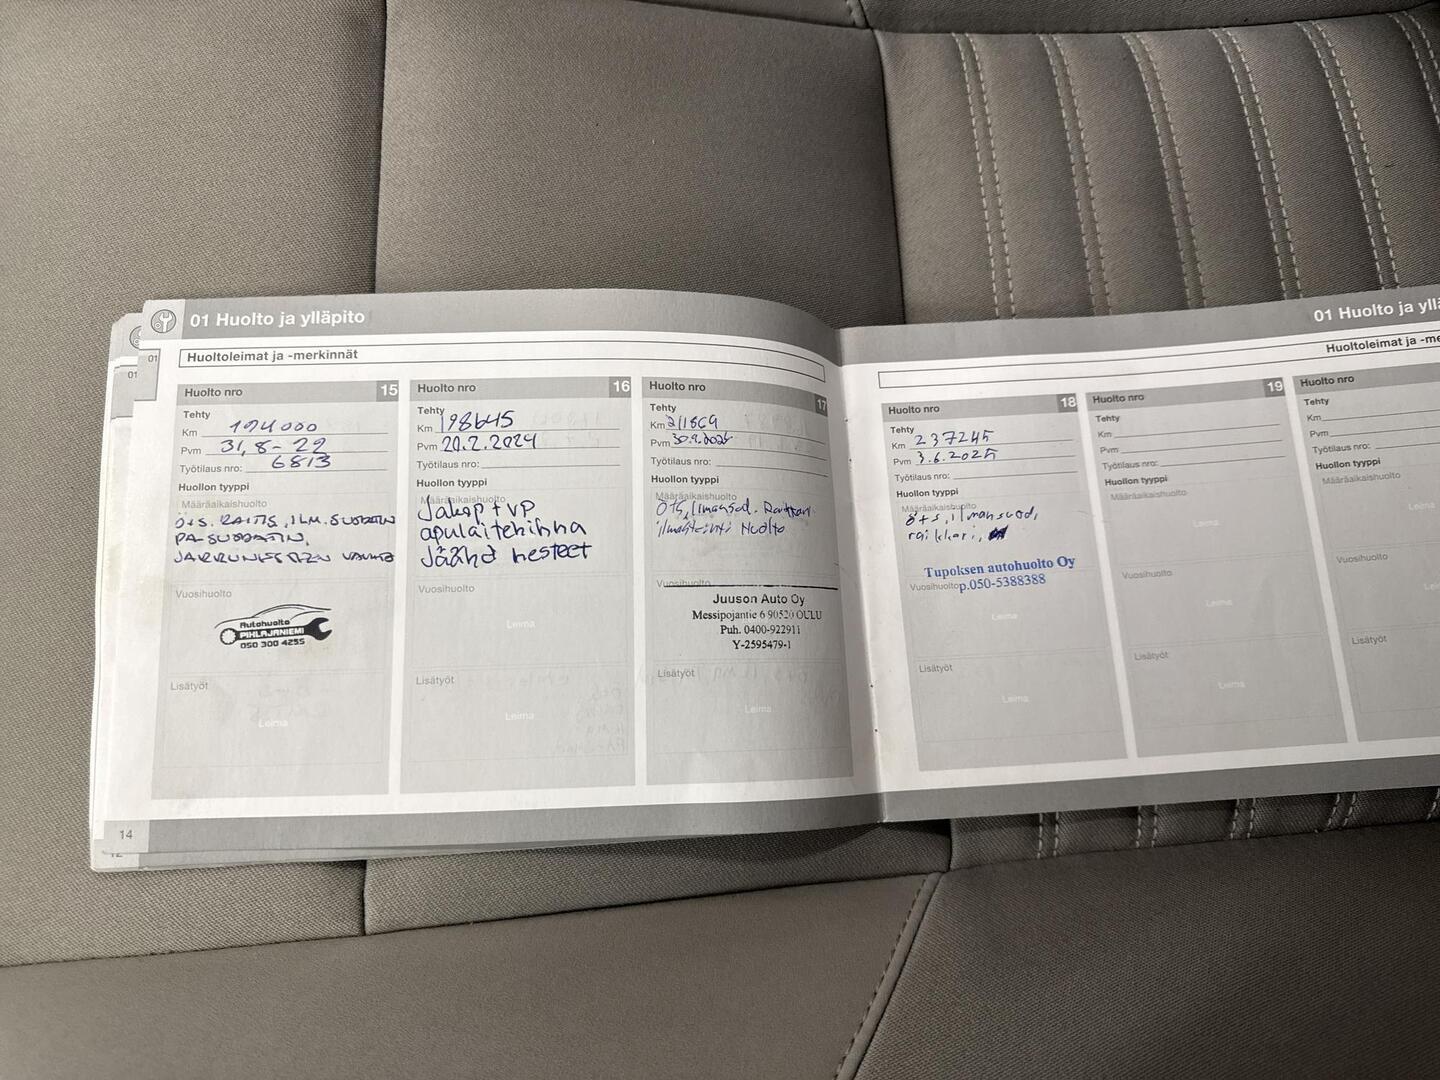 01 Huolto ja ylläpito
01
01
Huoltoleimat ja -merkinnät
Huolto nro 15
Tehty
Km 194000
Pvm 31,8-22
Työtilaus nro: 6813
Huollon tyyppi
Määräaikaishuolto
Ö+S. RAITIS, ILM. SUODATIN
PA-SUODATIN,
JARRUNESTEEN VAIHTO
Vuosihuolto
Autohuolto
PIHLAJANIEMI
050 300 4255
Lisätyöt
Leima
Huolto nro 16
Tehty
Km 198645
Pvm 20.2.2024
Työtilaus nro:
Huollon tyyppi
Määräaikaishuolto
Jakop + VP
apulaitehihna
Jäähd nesteet
Vuosihuolto
Leima
Lisätyöt
Leima
Huolto nro 17
Tehty
Km 211869
Pvm
Työtilaus nro:
Huollon tyyppi
Määräaikaishuolto
Ö+S, Ilmansuod. Raikkari
Huolto
Vuosihuolto
Juuson Auto Oy
Messipojantie 6 90520 OULU
Puh. 0400-922911
Y-2595479-1
Lisätyöt
Leima
14
12
01 Huolto ja yllä
Huoltoleimat ja -me
Huolto nro 18
Tehty
Km 237245
Pvm 3.6.2025
Työtilaus nro:
Huollon tyyppi
Määräaikaishuolto
ö+s, ilmansuod,
raikkari,
Tupoksen autohuolto Oy
Vuosihuolto p.050-5388388
Leima
Lisätyöt
Leima
Huolto nro 19
Tehty
Km
Pvm
Työtilaus nro:
Huollon tyyppi
Määräaikaishuolto
Leima
Vuosihuolto
Leima
Lisätyöt
Leima
Huolto nro
Tehty
Km
Pvm
Työtilaus nro:
Huollon tyyppi
Määräaikaishuolto
Vuosihuolto
Lisätyöt